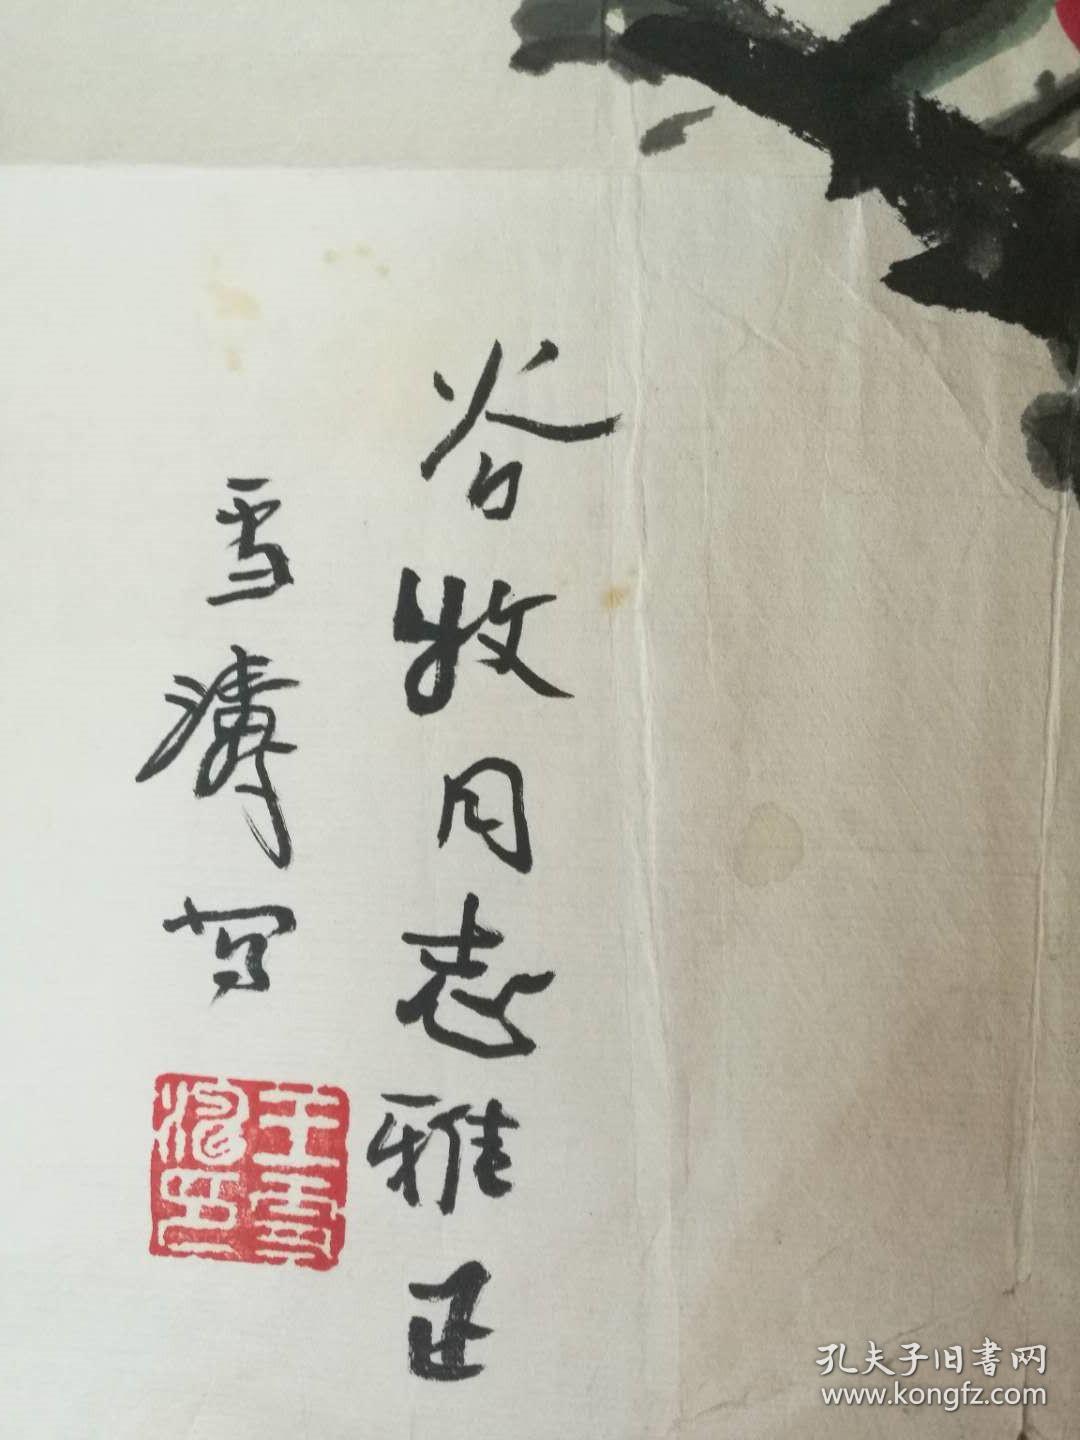 谷牧同志雅正
雪濤写
王雪濤印
孔夫子旧書网
www.kongfz.com